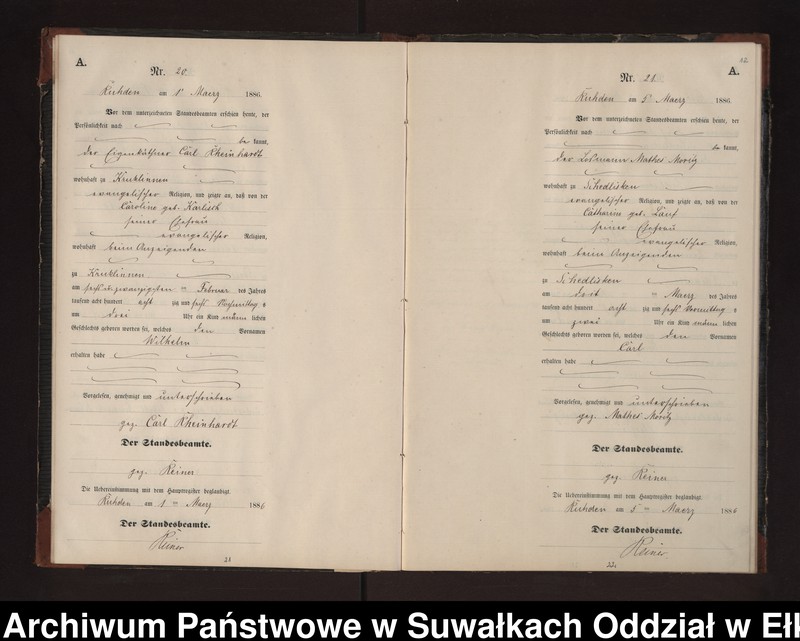 A.
Nr. 20.
Kuhden am 1n Maerz 1886.
Vor dem unterzeichneten Standesbeamten erschien heute, der
Persönlichkeit nach
be kannt,
der Eigenkäthner Carl Rheinhardt
wohnhaft zu Kruklinnen
evangelischer Religion, und zeigte an, daß von der
Caroline geb.
seiner Ehefrau
evangelischer Religion,
wohnhaft beim Anzeigenden
zu Kruklinnen
am sechsundzwanzigsten Februar des Jahres
tausend acht hundert acht zig und sechs Vormittags
um drei Uhr ein Kind männlichen
Geschlechts geboren worden sei, welches den Vornamen
Wilhelm
erhalten habe
Vorgelesen, genehmigt und unterschrieben
gez. Carl Rheinhardt
Der Standesbeamte.
gez. Reiner
Die Uebereinstimmung mit dem Hauptregister beglaubigt
Kuhden am 1 ten Maerz 1886
Der Standesbeamte.
Reiner
21
A.
Nr. 21.
Kuhden am 5n Maerz 1886.
Vor dem unterzeichneten Standesbeamten erschien heute, der
Persönlichkeit nach
be kannt,
der Losmann Mathes
wohnhaft zu Schedlisken
evangelischer Religion, und zeigte an, daß von der
Catharine geb.
seiner Ehefrau
evangelischer Religion,
wohnhaft beim Anzeigenden
zu Schedlisken
am Maerz des Jahres
tausend acht hundert acht zig und sechs Vormittags
um zwei Uhr ein Kind männlichen
Geschlechts geboren worden sei, welches den Vornamen
Carl
erhalten habe
Vorgelesen, genehmigt und unterschrieben
gez. Mathes
Der Standesbeamte.
gez. Reiner
Die Uebereinstimmung mit dem Hauptregister beglaubigt
Kuhden am 5 ten Maerz 1886
Der Standesbeamte.
Reiner
22.
Archiwum Państwowe w Suwałkach Oddział w Eł